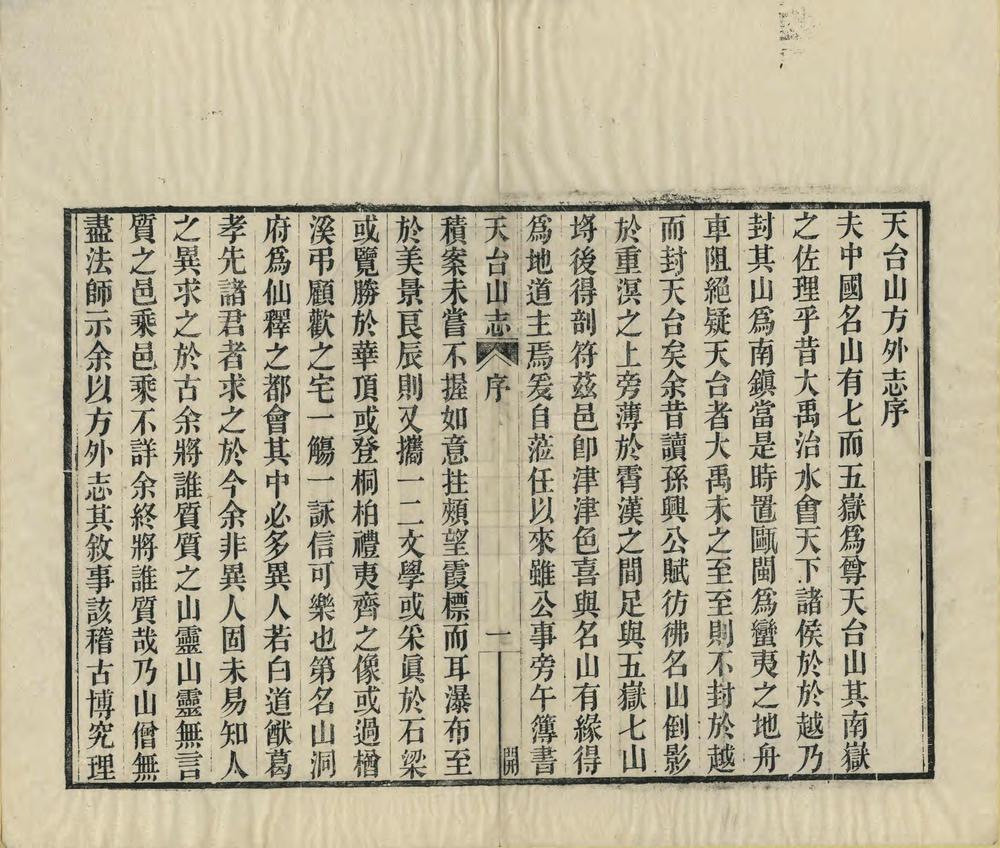 天台山方外志序
夫中國名山有七而五嶽爲尊天台山其南嶽
之佐理乎昔大禹治水會天下諸侯於於越乃
封其山爲南鎮當是時置甌閩爲蠻夷之地舟
車阻絕疑天台者大禹未之至至則不封於越
而封天台矣余昔讀孫興公賦彷彿名山倒影
於重溟之上旁薄於霄漢之間足與五嶽七山
埒後得剖符茲邑卽津津色喜與名山有緣得
爲地道主焉爰自蒞任以來雖公事旁午簿書
天台山志 序 一 開
積案未嘗不握如意拄頰望霞標而耳瀑布至
於美景良辰則又攜一二文學或采眞於石梁
或覽勝於華頂或登桐柏禮夷齊之像或過楢
溪弔顧歡之宅一觴一詠信可樂也第名山洞
府爲仙釋之都會其中必多異人若白道猷葛
孝先諸君者求之於今余非異人固未易知人
之異求之於古余將誰質質之山靈山靈無言
質之邑乘邑乘不詳余終將誰質哉乃山僧無
盡法師示余以方外志其敘事該稽古博究理